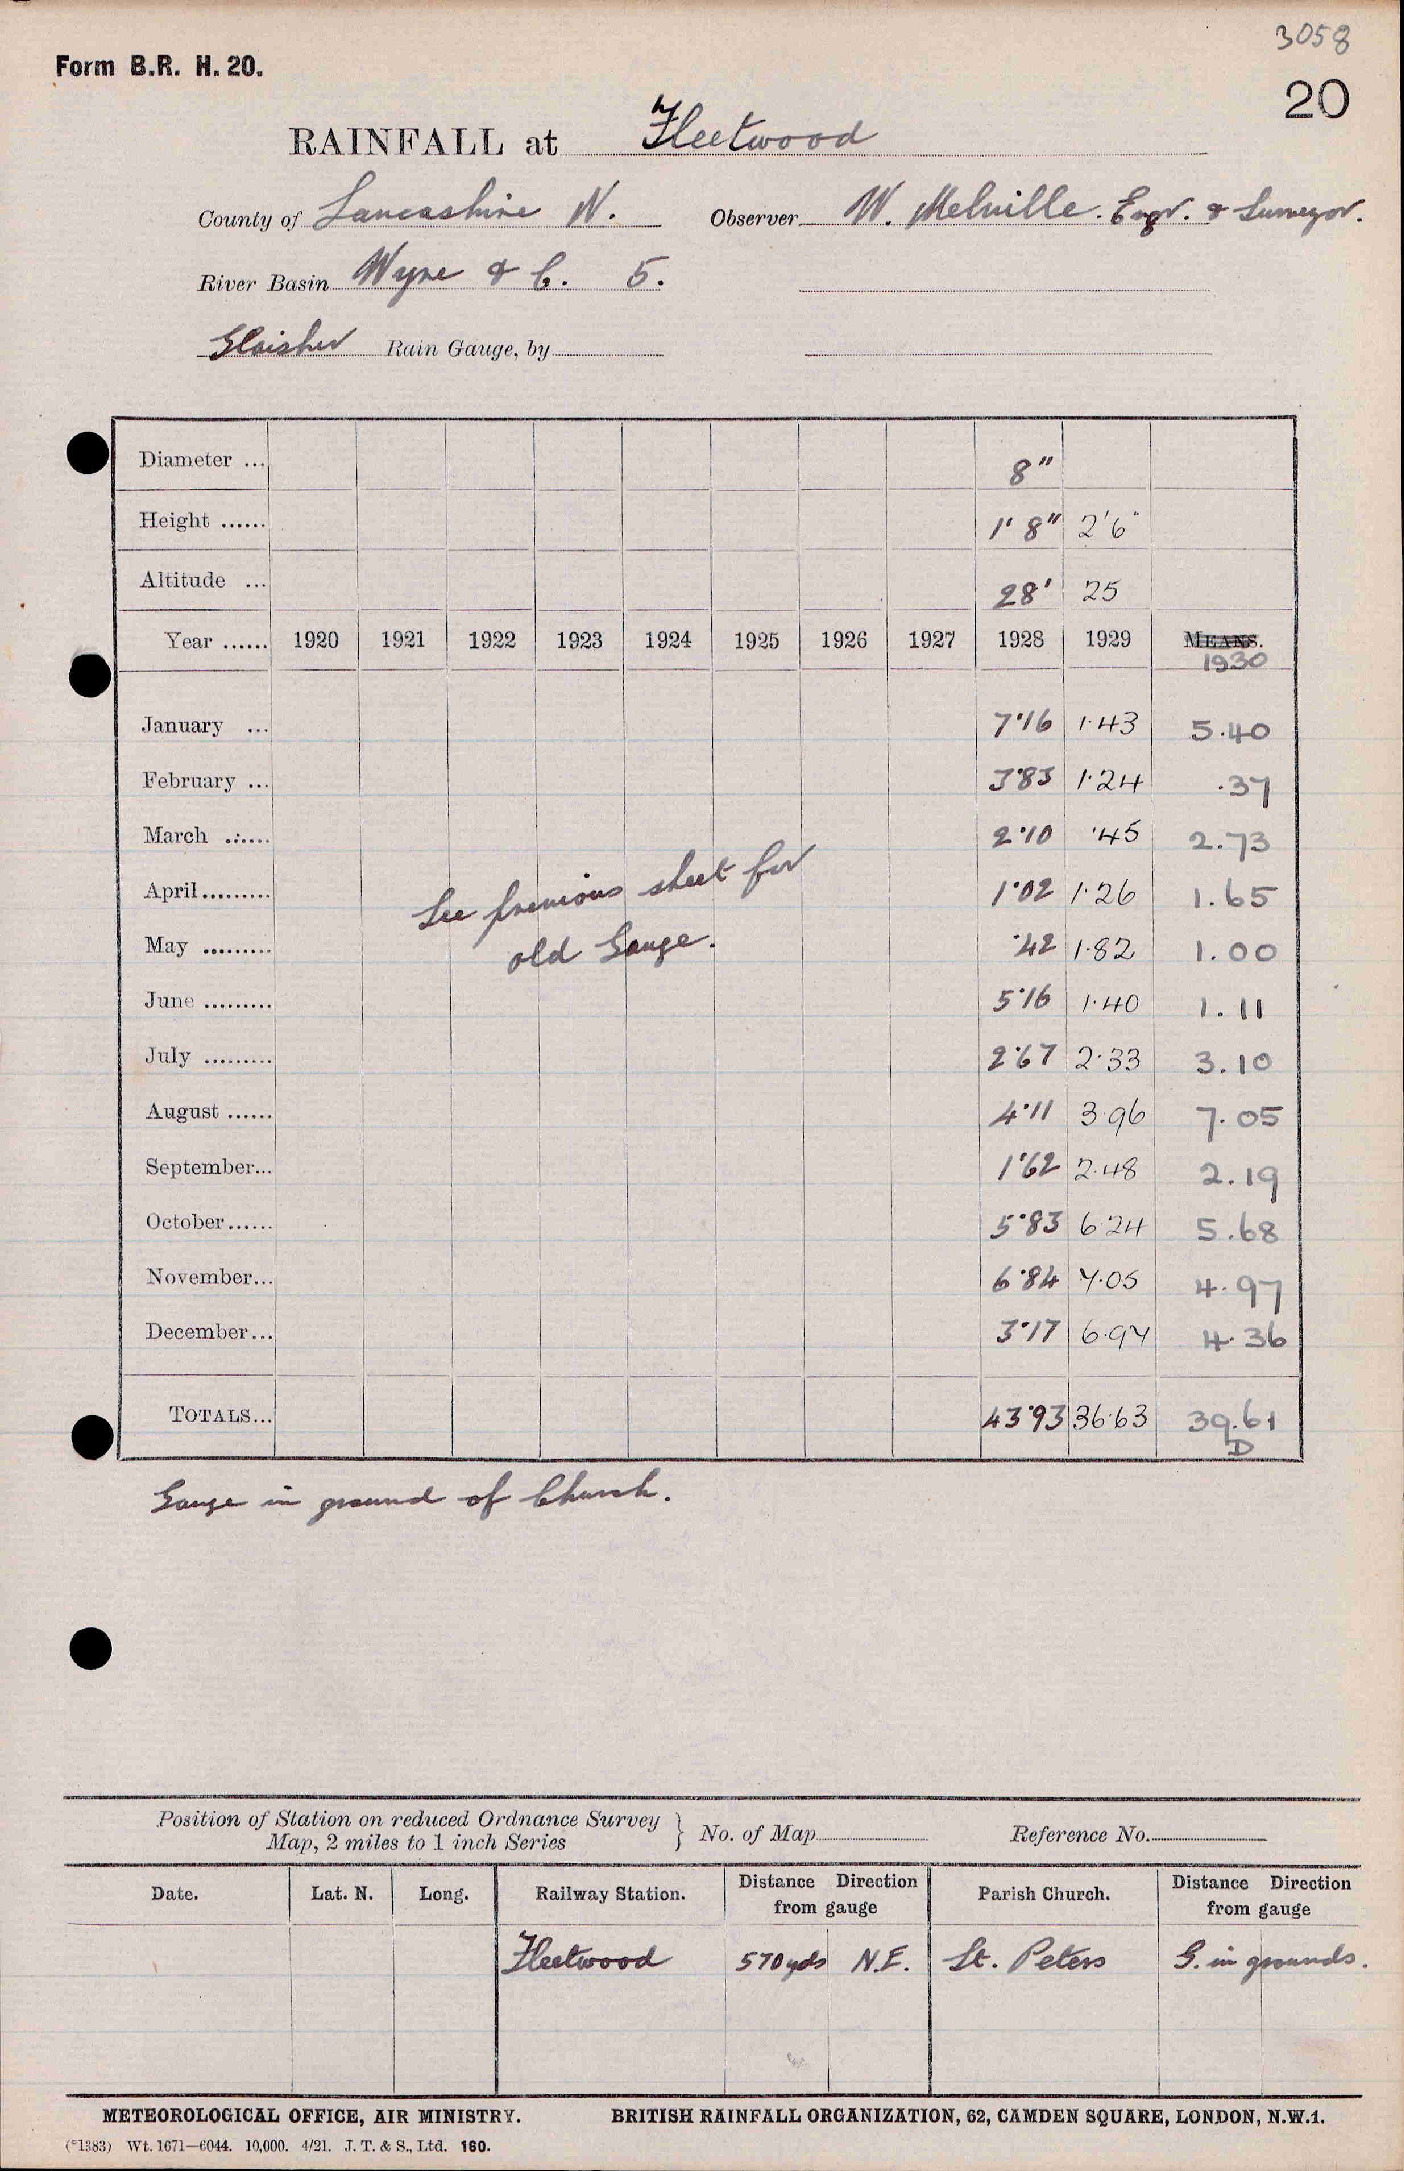 3058
Form B.R. H. 20.
20
RAINFALL at Fleetwood
County of Lancashire N. Observer W. Melville. Engr. & Surveyor.
River Basin Wyre & C. 5.
Glaisher Rain Gauge, by
Diameter ... 8"
Height ...... 1' 8" 2'6"
Altitude ... 28' 25
Year ...... 1920 1921 1922 1923 1924 1925 1926 1927 1928 1929 MEANS.
1930
January ... 7·16 1·43 5.40
February ... 3·83 1·24 .37
March ...... 2·10 ·45 2.73
April ......... 1·02 1·26 1.65
May ......... ·42 1·82 1.00
June ......... 5·16 1·40 1.11
July ......... 2·67 2·33 3.10
August ...... 4·11 3·96 7.05
September... 1·62 2·48 2.19
October...... 5·83 6·24 5.68
November... 6·84 7·05 4.97
December... 3·17 6·97 4.36
See previous sheet for
old Gauge.
TOTALS... 43·93 36·63 39.61
D
Gauge in ground of Church.
Position of Station on reduced Ordnance Survey
Map, 2 miles to 1 inch Series } No. of Map Reference No.
Date. Lat. N. Long. Railway Station. Distance Direction from gauge Parish Church. Distance Direction from gauge
Fleetwood 570 yds N.E. St. Peters G. in grounds.
METEOROLOGICAL OFFICE, AIR MINISTRY. BRITISH RAINFALL ORGANIZATION, 62, CAMDEN SQUARE, LONDON, N.W.1.
(*1383) Wt. 1671—6044. 10,000. 4/21. J. T. & S., Ltd. 160.